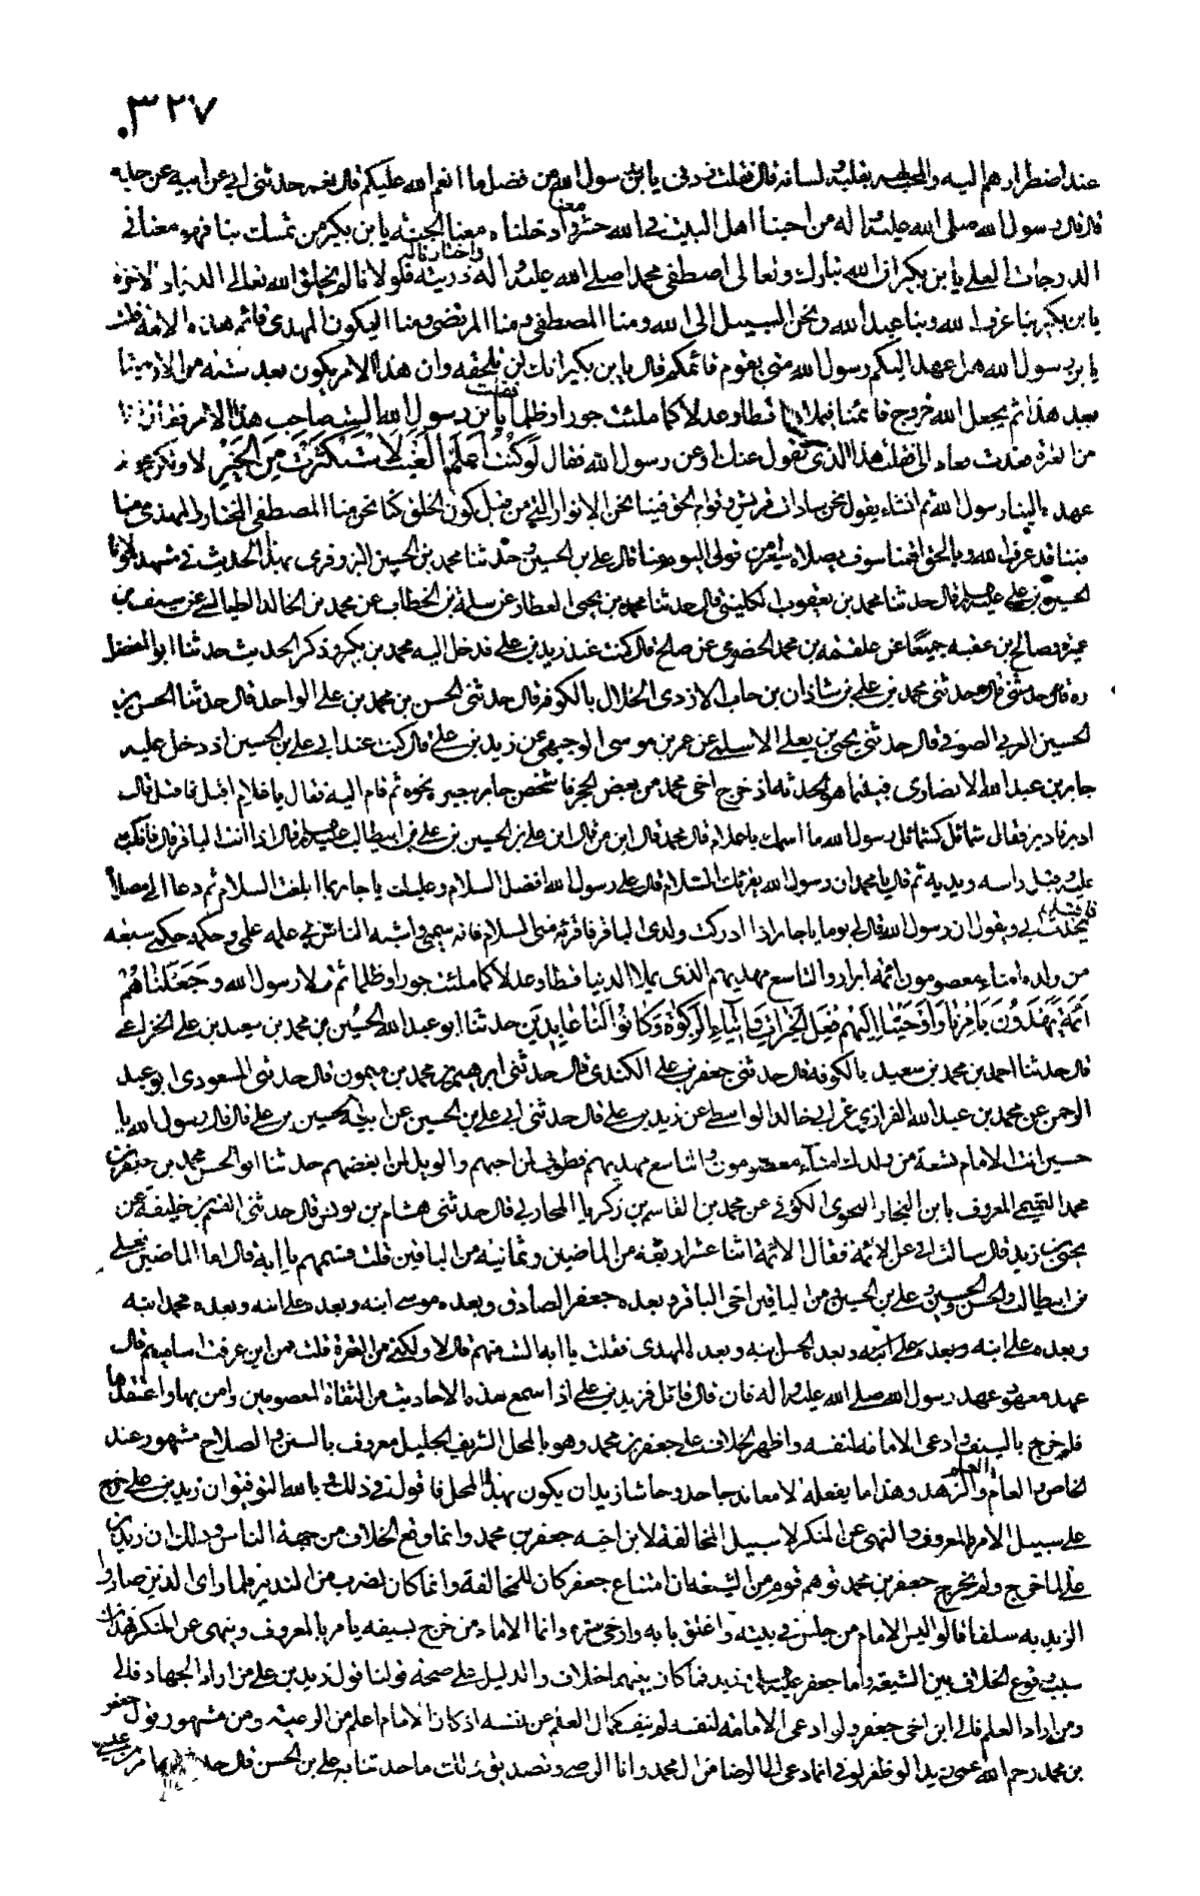 ٣٢٧
عند اضطرارهم اليه والمحب لهم بقلبه ولسانه قال فقلت زدنى يا بن رسول الله من فضل ما انعم الله عليكم قال نعم حدثنى ابي عن ابيه عن جده
قال قال رسول الله صلى الله عليه واله من احبنا اهل البيت في الله حشر معنا وادخلناه معنا الجنة يا بن بكير من تمسك بنا فهو معنا في
الدرجات العلى يا بن بكير ان الله تبارك وتعالى اصطفى محمدا صلى الله عليه واله واختارنا له ذرية فلولانا لم يخلق الله تعالى الدنيا والاخرة
يا بن بكير بنا عرف الله وبنا عبد الله ونحن السبيل الى الله ومنا المصطفى ومنا المرتضى ومنا يكون المهدى قائم هذه الامة قلت
يا بن رسول الله هل عهد اليكم رسول الله متى يقوم قائمكم قال يا بن بكير انك لن تلحقه وان هذا الامر يكون بعد ستة من الاوصيا
بعد هذا ثم يجعل الله خروج قائمنا فيملاها قسطا وعدلا كما ملئت جورا وظلما فقلت يا بن رسول الله الست صاحب هذا الامر فقال انا
من العترة فعدت فعاد الى فقلت هذا الذى تقول عنك او عن رسول الله فقال لَوْ كُنْتُ اَعْلَمُ الْغَيْبَ لَاسْتَكْثَرْتُ مِنَ الْخَيْرِ لا ولكن
عهده الينا رسول الله ثم انشاء يقول نحن سادات قريش وقوام الحق فينا نحن الانوار التى من قبل كون الخلق كنا نحن منا المصطفى المختار والمهدى منا
فبنا قد عرف الله وبالحق اقمنا سوف يصلاه سعير من تولى اليوم عنا قال على بن الحسين وحدثنا محمد بن الحسين البزوفرى بهذا الحديث في مشهد مولانا
الحسين بن على عليه السلام قال حدثنا محمد بن يعقوب الكلينى قال حدثنا محمد بن يحيى العطار عن سلمة بن الخطاب عن محمد بن الخالد الطيالسى عن سيف بن
عميرة وصالح بن عقبه جميعًا عن علقمه بن محمد الحضرمى عن صالح قال كنت عند زيد بن على فدخل اليه محمد بن بكير وذكر الحديث حدثنا ابو المفضل
ره قال حدثنى محمد بن على بن شاذان بن حباب الازدى الخلال بالكوفة قال حدثنى الحسن بن محمد بن على الواحد قال حدثنا الحسن بن
الحسين العربى الصوفى قال حدثنى يحيى بن يعلى الاسلمى عن عمر بن موسى الوجيهى عن زيد بن على قال كنت عند ابى على بن الحسين اذ دخل عليه
جابر بن عبد الله الانصارى فبينما هو يحدثه اذ خرج اخى محمد من بعض الحجر فاشخص جابر ببصره نحوه ثم قام اليه فقال يا غلام اقبل فاقبل قال
ادبر فادبر فقال شمائل كشمائل رسول الله ما اسمك يا غلام قال محمد قال ابن من قال ابن على بن الحسين بن على بن ابيطالب عليهم السلام قال اذا انت الباقر قال فانكب
عليه وقبل راسه ويديه ثم قال يا محمد ان رسول الله يقرئك السلام قال على رسول الله افضل السلام وعليك يا جابر بما ابلغت السلام ثم دعا الى مصلاه
فاقبل يحدث ابى ويقول ان رسول الله قال لى يوما يا جابر اذا ادركت ولدى الباقر فاقرئه منى السلام فانه سميى واشبه الناس بى علمه علمى وحكمه حكمى سبعه
من ولده امناء معصومون ائمة ابرار والتاسع مهديهم الذى يملا الدنيا قسطا وعدلا كما ملئت جورا وظلما ثم تلا رسول الله وَجَعَلْنَاهُمْ
اَئِمَّةً يَهْدُونَ بِاَمْرِنَا وَاَوْحَيْنَا اِلَيْهِمْ فِعْلَ الْخَيْرَاتِ وَاِيْتَاءِ الزَّكوٰةِ وَكَانُوا لَنَا عَابِدِيْنَ حدثنا ابو عبد الله الحسين بن محمد بن سعيد بن على الخزاعى
قال حدثنا احمد بن محمد بن سعيد بالكوفه قال حدثنى جعفر بن على الكندى قال حدثنى ابرهيم بن محمد بن ميمون قال حدثنى المسعودى ابو عبد
الرحمن عن محمد بن عبد الله الفرازى عن ابى خالد الواسطى عن زيد بن على قال حدثنى ابى على بن الحسين عن ابيه الحسين بن على قال قال رسول الله يا
حسين انت الامام تسعة من ولدك امنآء معصومون والتاسع مهديهم فطوبى لمن احبهم والويل لمن ابغضهم حدثنا ابو الحسن محمد بن جعفر بن
محمد التميمى المعروف بابن النجار النحوى الكوفى عن محمد بن القاسم بن زكريا المحاربى قال حدثنى هشام بن يونس قال حدثنى القسم بن خليفة عن
يحيى بن زيد قال سالت ابى عن الائمة فقال الائمة اثنا عشر اربعة من الماضين وثمانية من الباقين قلت فسمهم يا ابه قال اما الماضين فعلى
بن ابيطالب والحسن والحسين وعلى بن الحسين من الباقين اخى الباقر وبعده جعفر الصادق وبعده موسى ابنه وبعده على ابنه وبعده محمد ابنه
وبعده على ابنه وبعده على ابنه وبعده الحسن ابنه وبعده المهدى فقلت يا ابه الست منهم قال لا ولكنى من العترة قلت فمن اين عرفت اساميهم قال
عهد معهود عهده رسول الله صلى الله عليه واله فان قال قائل فزيد بن على اذا سمع هذه الاحاديث من الثقاة المعصومين وامن بها واعتقدها
فلم خرج بالسيف وادعى الامامة لنفسه واظهر الخلاف على جعفر بن محمد وهو بالمحل الشريف الجليل معروف بالستر والصلاح مشهور عند
الخاص والعام والعلم والزهد وهذا ما يفعله الا معاند جاحد وحاشا زيدا ان يكون بهذا المحل فاقول في ذلك وبالله التوفيق ان زيد بن على خرج
على سبيل الامر بالمعروف والنهى عن المنكر لا سبيل المخالفة لابن اخيه جعفر بن محمد وانما وقع الخلاف من جهة الناس وذلك ان زيد بن
على لما خرج ولم يخرج جعفر بن محمد توهم قوم من الشيعه ان امتناع جعفر كان للمخالفة وانما كان لضرب من التدبير فلما راى الذين صاروا
الزيديه سلفا قالوا ليس الامام من جلس في بيته واغلق بابه وارخى ستره وانما الامام من خرج بسيفه يامر بالمعروف وينهى عن المنكر فهذا كان
سبب وقوع الخلاف بين الشيعة واما جعفر عليه السلام وزيد فما كان بينهما خلاف والدليل على صحة قولنا قول زيد بن على من اراد الجهاد فالى
ومن اراد العلم فالى ابن اخى جعفر ولو ادعى الامامة لنفسه لم ينف كمال العلم عن نفسه اذ كان الامام اعلم من الرعيه ومن مشهور قول جعفر
بن محمد رحم الله عمى زيدا لو ظفر لوفى انما دعى الى الرضا من ال محمد وانا الرضى وتصديق ذلك ما حدثنا به على بن الحسن قال